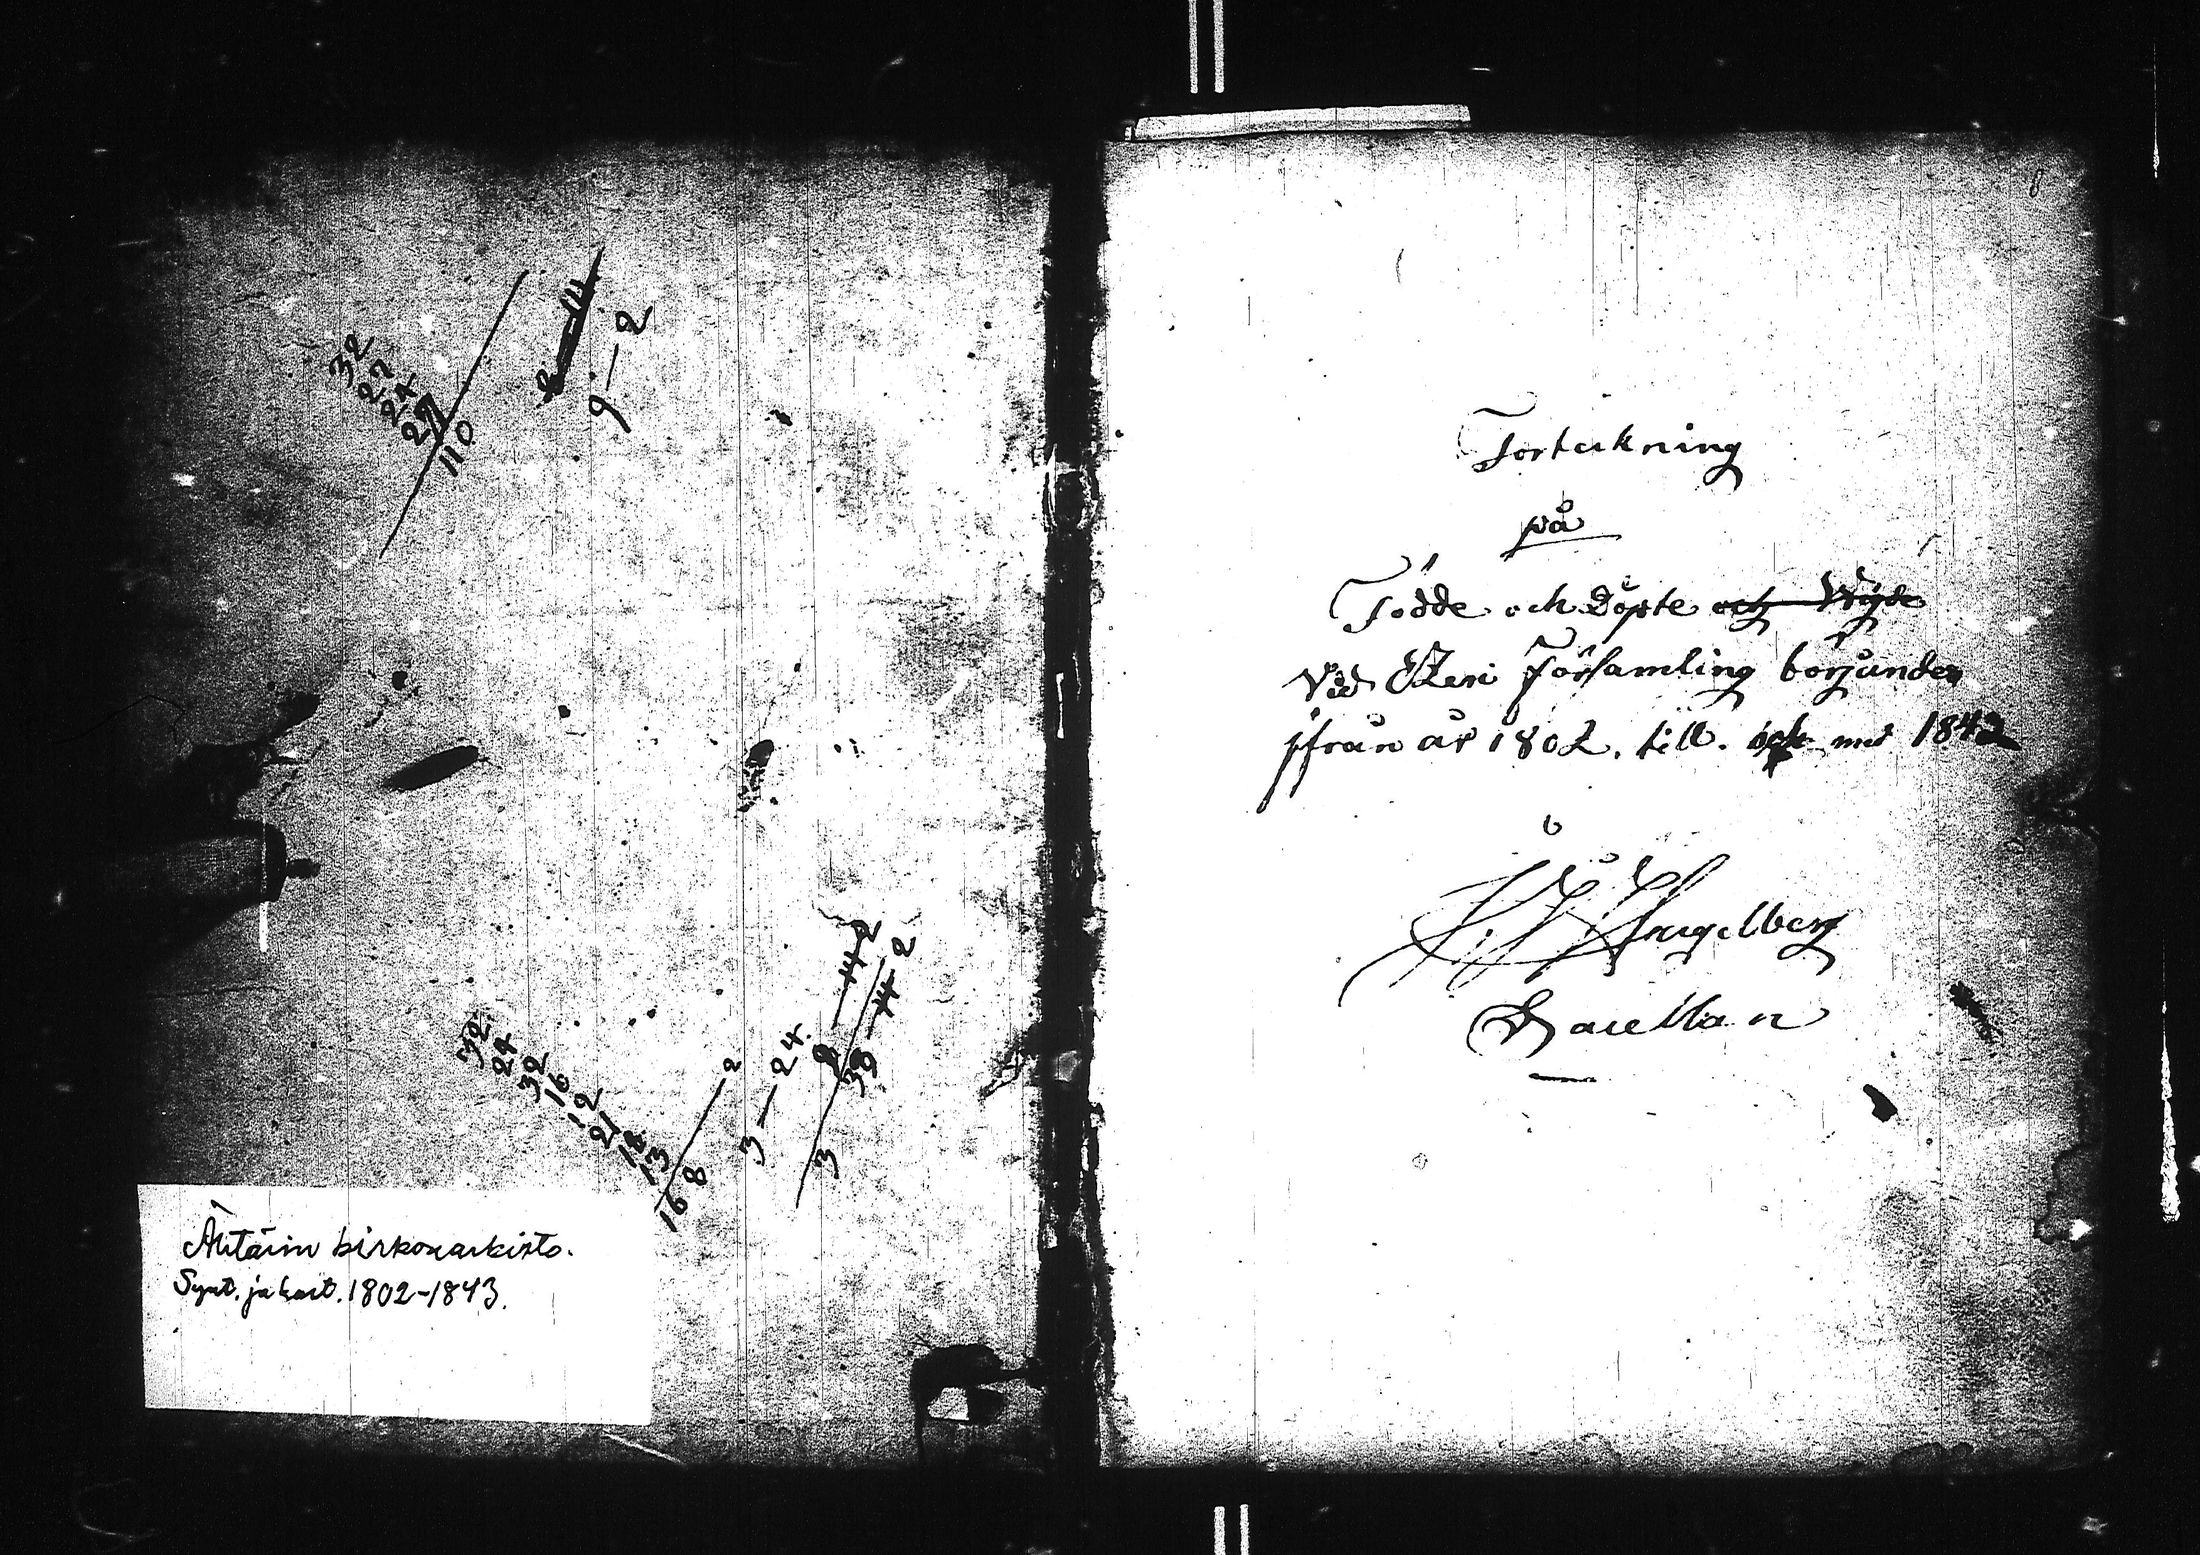 32
27
24
27
110
9 — 2
32
24
32
16
12
21
18
13
168
2
3 — 24.
3
Ähtärin kirkonarkisto.
Synt. ja kast. 1802-1843.
Förteckning
på
Födde och Döpte och Wigde
Vid Etzeri Församling börjandes
ifrån år 1802. till. och med 1843
Engelberg
Capellan